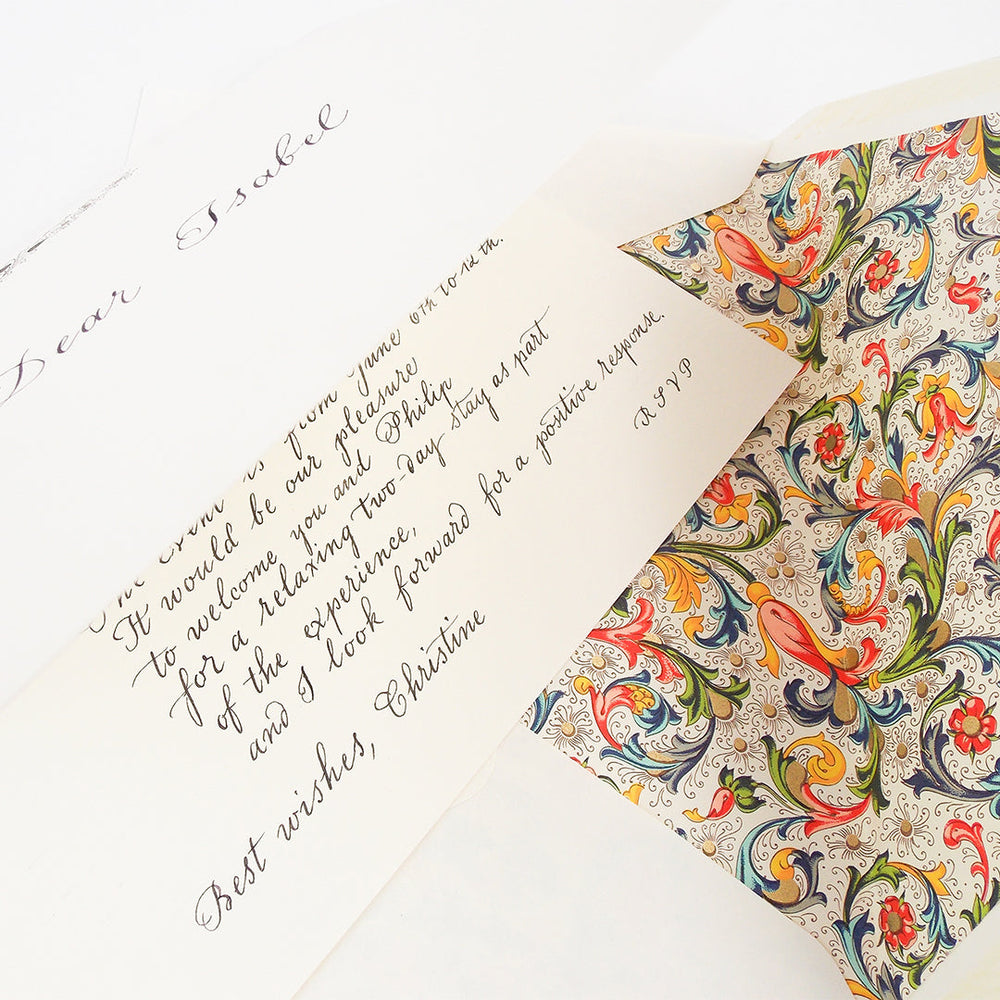 Dear Isabel
event is from June to 12 th.
It would be our pleasure
to welcome you and Philip
for a relaxing two-day stay as part
of the experience,
and I look forward for a positive response.
Best wishes,
Christine
R S V P